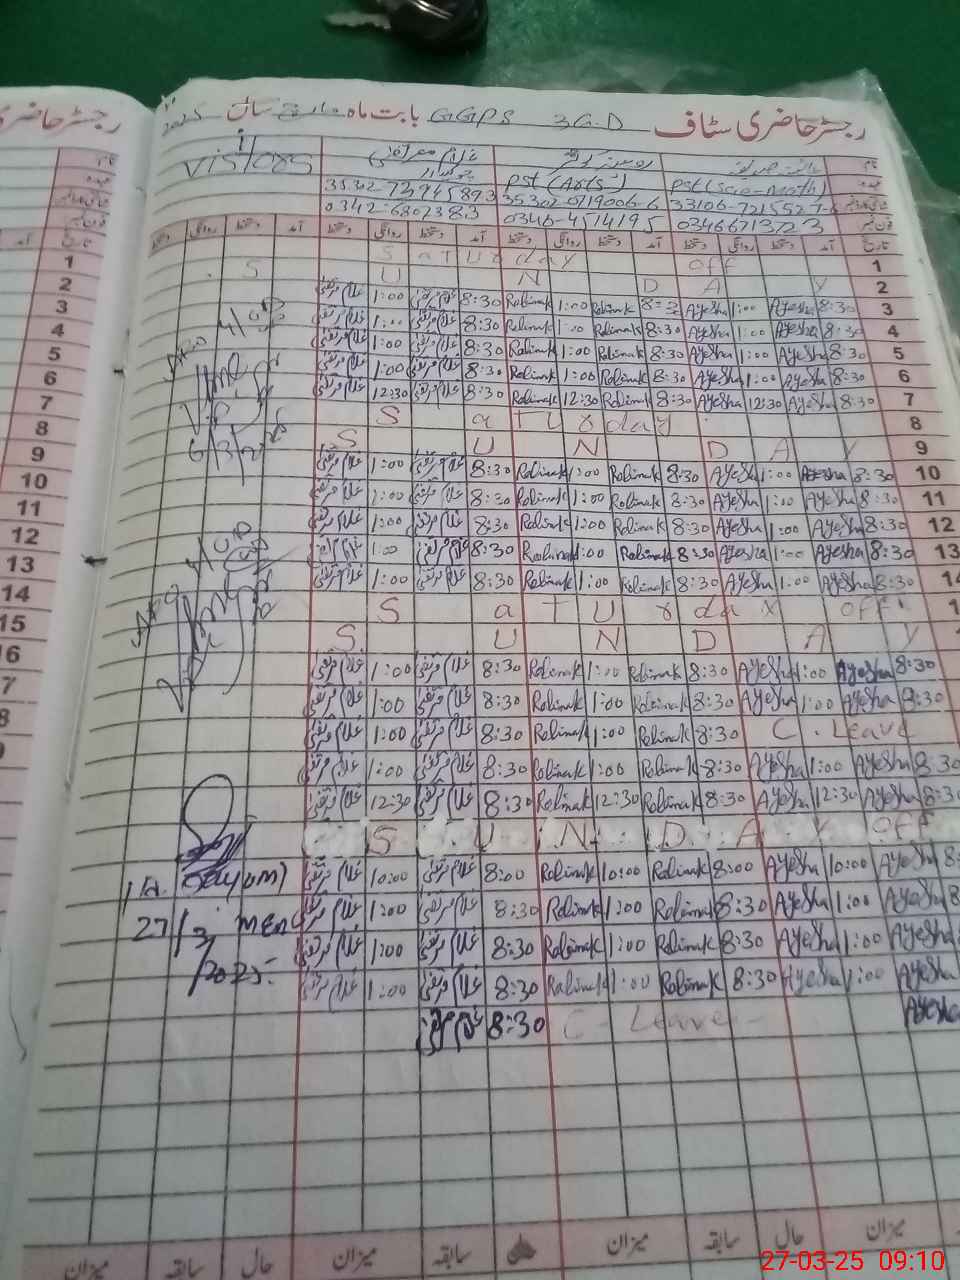 رجسٹر حاضری سٹاف 3G.D GGPS بابت ماہ مارچ سال 2025
نام روبینہ کوثر غلام مرتضیٰ visitors
عہدہ PST (Sci-math) PST (Arts) چوکیدار
35302-0719006-6
0346-4514195
تاریخ آمد دستخط روانگی دستخط آمد دستخط روانگی دستخط آمد دستخط روانگی دستخط آمد دستخط روانگی دستخط
1 Saturday off
2 S U N D A Y
3 غلام مرتضیٰ 1:00 غلام مرتضیٰ 8:30 Robinak 1:00 Robinak Ayesha 1:00 Ayesha 8:30
4 غلام مرتضیٰ 1:00 غلام مرتضیٰ 8:30 Robinak 1:00 Robinak 8:30 Ayesha 1:00 Ayesha 8:30
5 غلام مرتضیٰ 1:00 غلام مرتضیٰ 8:30 Robinak 1:00 Robinak 8:30 Ayesha 1:00 Ayesha 8:30
6 غلام مرتضیٰ 1:00 غلام مرتضیٰ 8:30 Robinak 1:00 Robinak 8:30 Ayesha 1:00 Ayesha 8:30
7 غلام مرتضیٰ 12:30 غلام مرتضیٰ 8:30 Robinak 12:30 Robinak 8:30 Ayesha 12:30 Ayesha 8:30
8 S a T U r d a y
9 S U N D A Y
10 غلام مرتضیٰ 1:00 غلام مرتضیٰ 8:30 Robinak 1:00 Robinak 8:30 Ayesha 1:00 Ayesha 8:30
11 غلام مرتضیٰ 1:00 غلام مرتضیٰ 8:30 Robinak 1:00 Robinak 8:30 Ayesha 1:00 Ayesha 8:30
12 غلام مرتضیٰ 1:00 غلام مرتضیٰ 8:30 Robinak 1:00 Robinak 8:30 Ayesha 1:00 Ayesha 8:30
13 غلام مرتضیٰ 1:00 غلام مرتضیٰ 8:30 Robinak 1:00 Robinak 8:30 Ayesha 1:00 Ayesha 8:30
14 غلام مرتضیٰ 1:00 غلام مرتضیٰ 8:30 Robinak 1:00 Robinak 8:30 Ayesha 1:00 Ayesha 8:30
S a T U r d a y off
S U N D A Y
غلام مرتضیٰ 1:00 غلام مرتضیٰ 8:30 Robinak 1:00 Robinak 8:30 Ayesha 1:00 Ayesha 8:30
غلام مرتضیٰ 1:00 غلام مرتضیٰ 8:30 Robinak 1:00 Robinak 8:30 Ayesha 1:00 Ayesha 8:30
غلام مرتضیٰ 1:00 غلام مرتضیٰ 8:30 Robinak 1:00 Robinak 8:30 C. Leave
غلام مرتضیٰ 1:00 غلام مرتضیٰ 8:30 Robinak 1:00 Robinak 8:30 Ayesha 1:00 Ayesha 8:30
غلام مرتضیٰ 12:30 غلام مرتضیٰ 8:30 Robinak 12:30 Robinak 8:30 Ayesha 12:30 Ayesha 8:30
S U N D A Y off
غلام مرتضیٰ 10:00 غلام مرتضیٰ 8:00 Robinak 10:00 Robinak 8:00 Ayesha 10:00 Ayesha
غلام مرتضیٰ 1:00 غلام مرتضیٰ 8:30 Robinak 1:00 Robinak 8:30 Ayesha 1:00 Ayesha
غلام مرتضیٰ 1:00 غلام مرتضیٰ 8:30 Robinak 1:00 Robinak 8:30 Ayesha 1:00 Ayesha
غلام مرتضیٰ 1:00 غلام مرتضیٰ 8:30 Robinak 1:00 Robinak 8:30 Ayesha 1:00 Ayesha
غلام مرتضیٰ 8:30 C - Leave - Ayesha
6/3/25
27/3
2025
میزان حال سابقہ میزان سابقہ میزان حال سابقہ میزان
27-03-25 09:10